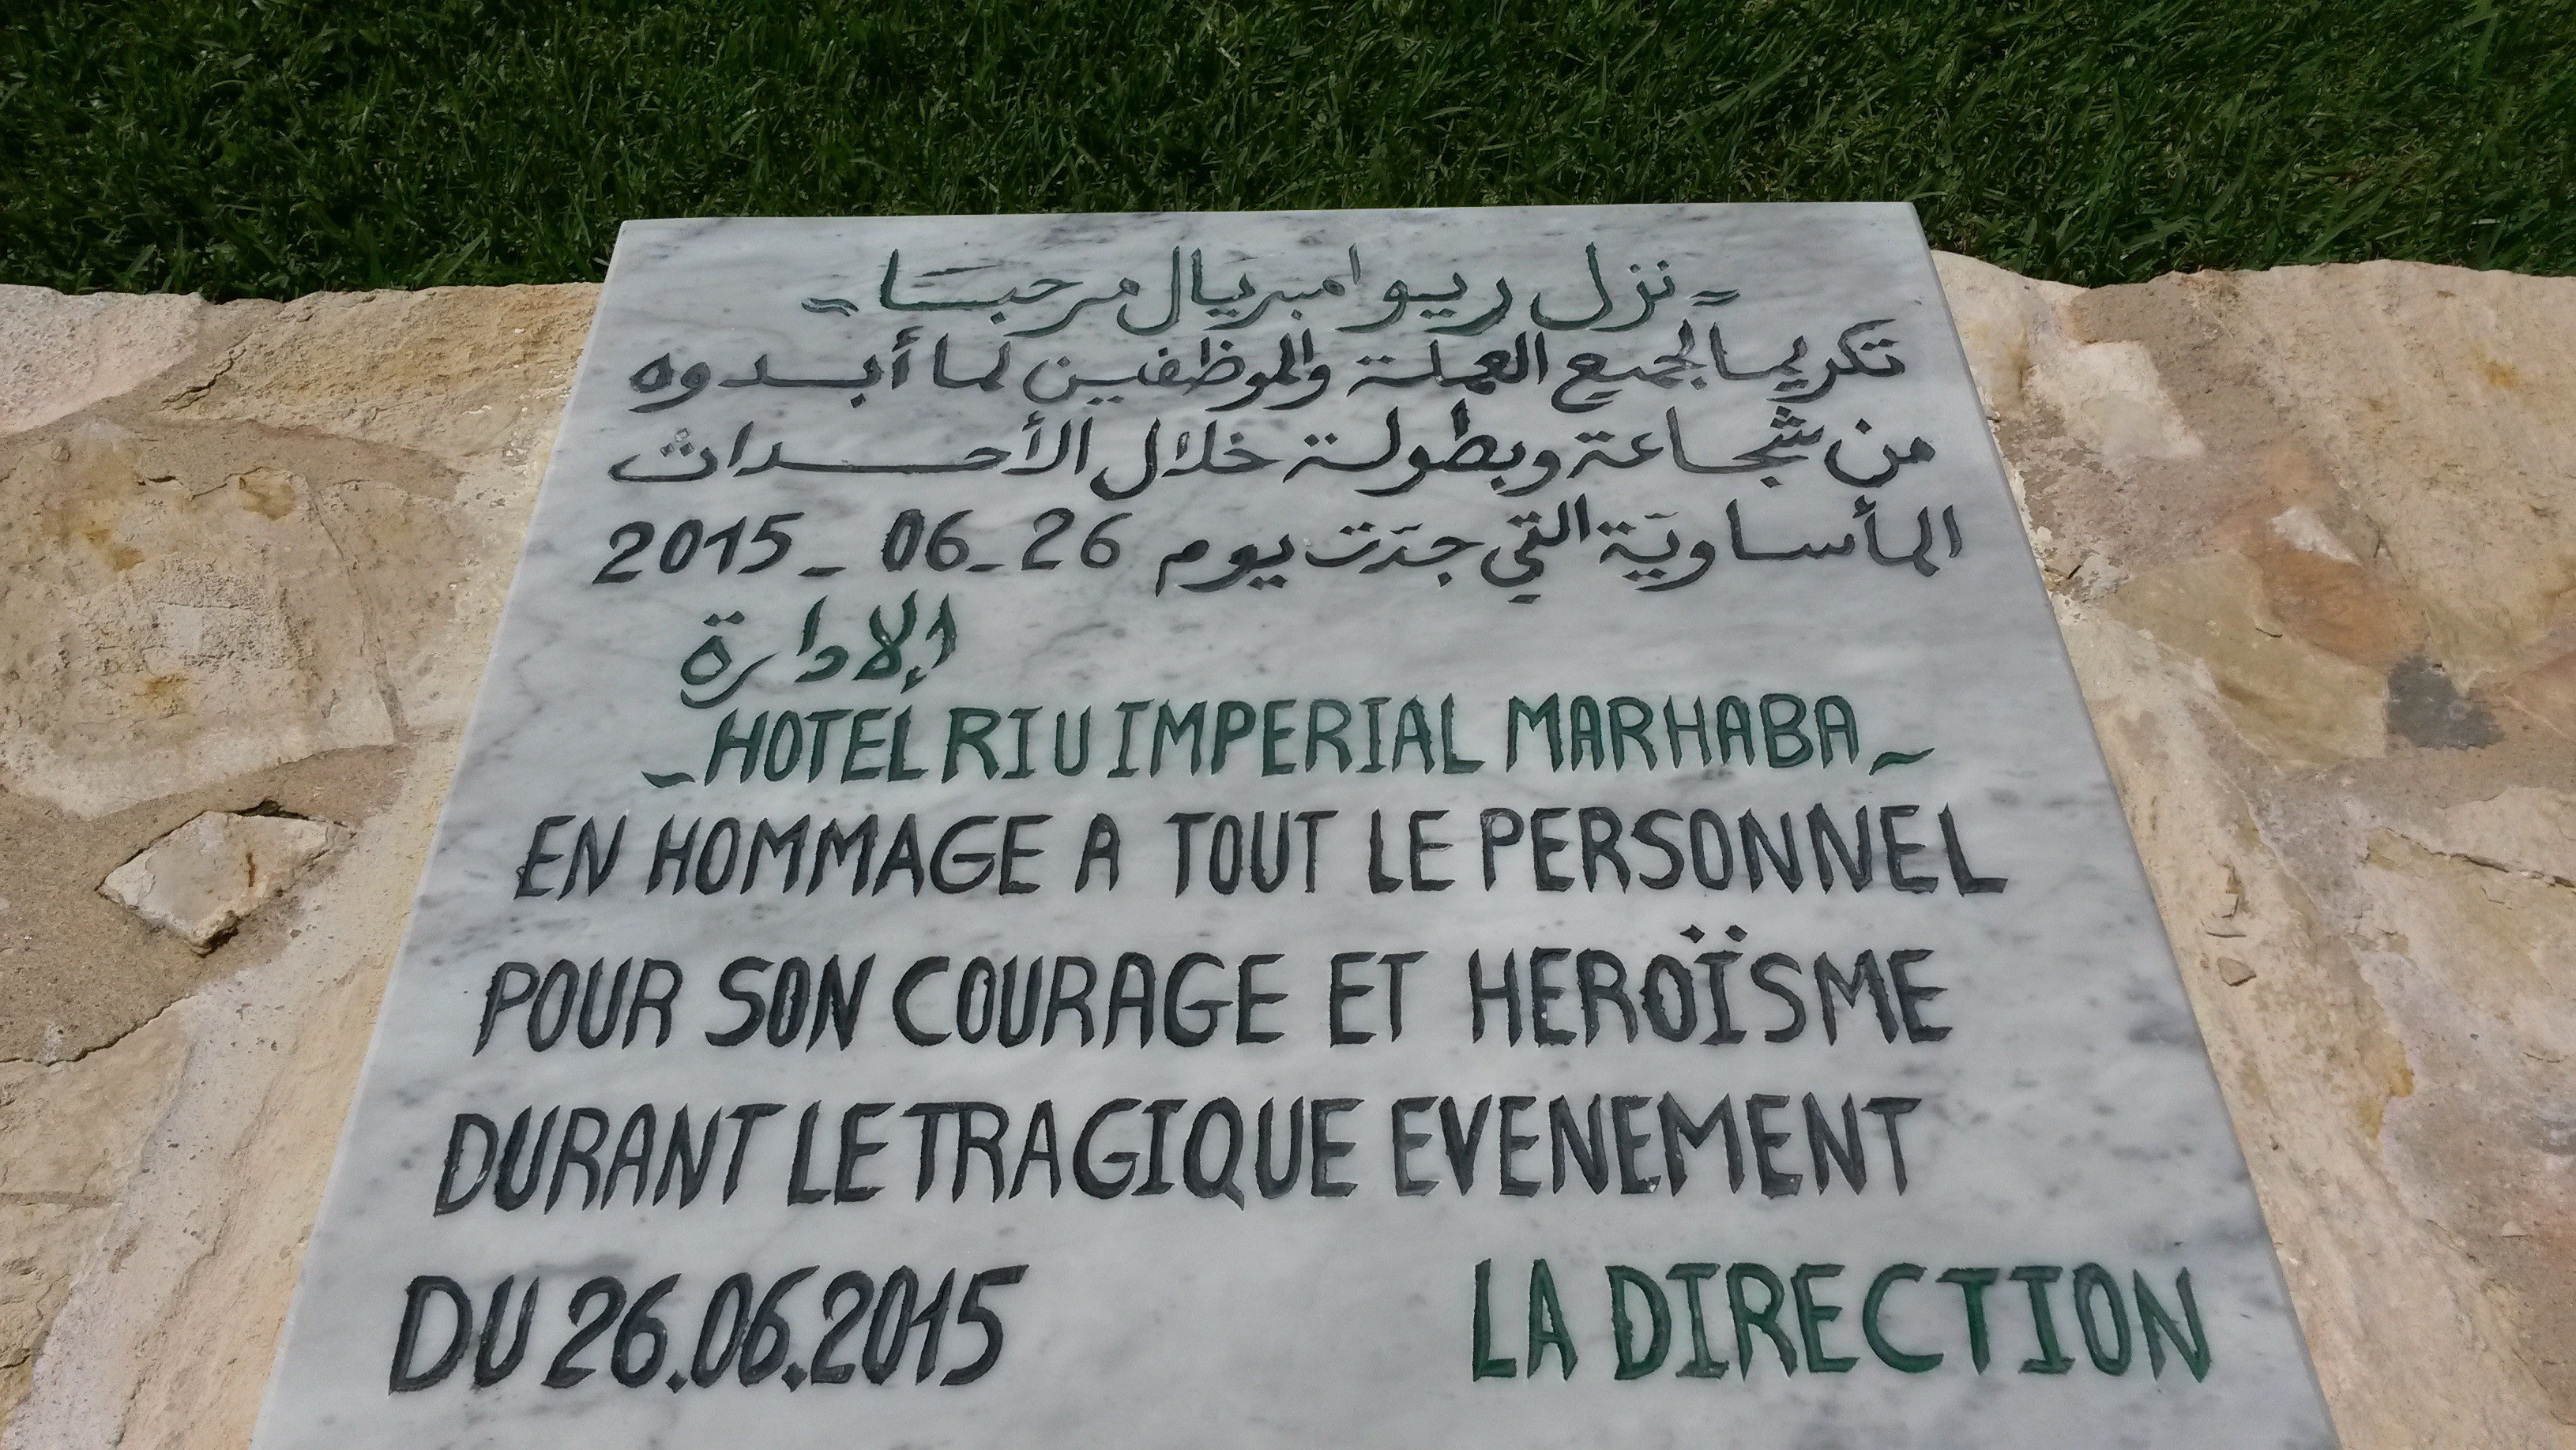 ~ نزل ريو امبريال مرحبا ~
تكريما لجميع العملة والموظفين لما أبدوه
من شجاعة وبطولة خلال الأحداث
المأساويّة التي جدّت يوم 26 _ 06 _ 2015
الإدارة
~ HOTEL RIU IMPERIAL MARHABA ~
EN HOMMAGE A TOUT LE PERSONNEL
POUR SON COURAGE ET HEROÏSME
DURANT LE TRAGIQUE EVENEMENT
DU 26.06.2015 LA DIRECTION